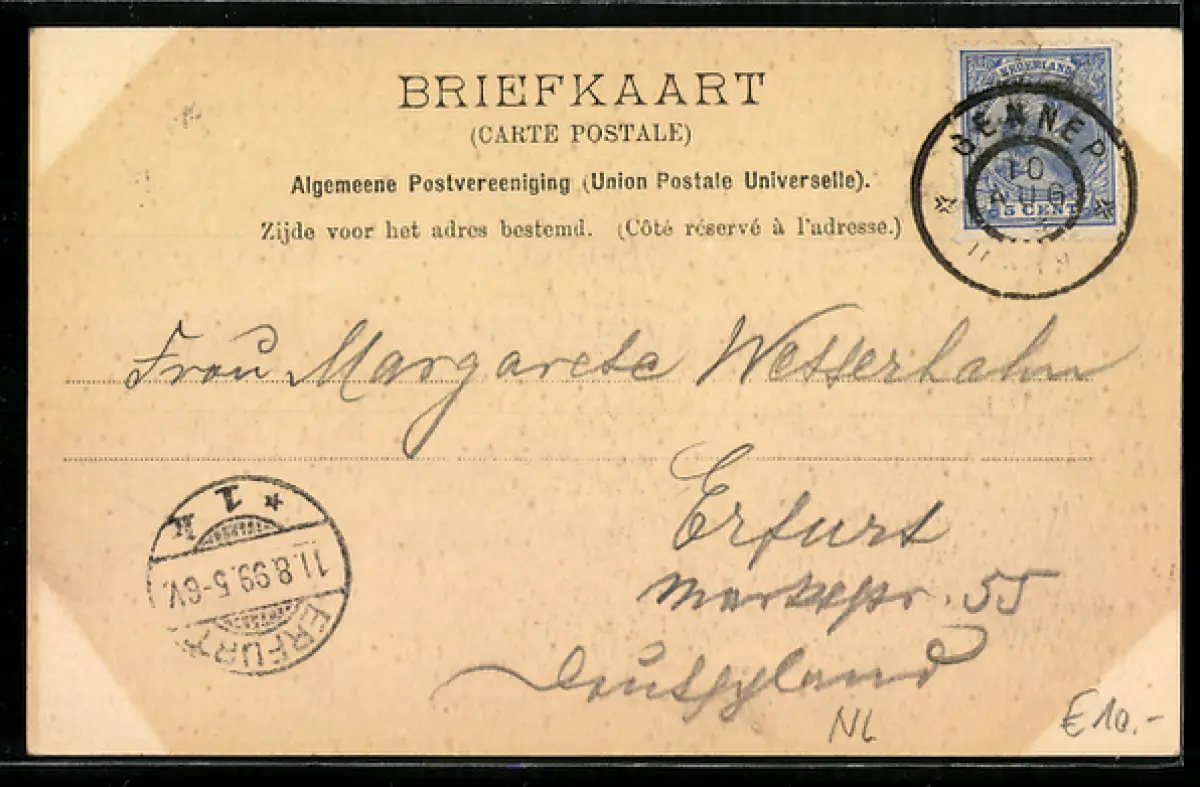 BRIEFKAART
(CARTE POSTALE)
Algemeene Postvereeniging (Union Postale Universelle).
Zijde voor het adres bestemd. (Côté réservé à l'adresse.)
NEDERLAND
5 CENT
GENNEP
10
AUG
Frau Margarete Wesserhahn
Erfurt
55
Deutschland
* 1 II
11.8.99.5-6V.
ERFURT
NL
€10.-